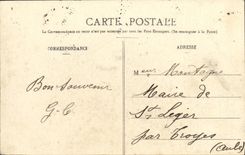 CARTE POSTALE
La Correspondance au recto n'est pas acceptée par tous les Pays Étrangers. (Se renseigner à la Poste)
CORRESPONDANCE
ADRESSE
Bon Souvenir
G-C
Monsieur Montagne
Maire de
St Léger
par Troyes
(Aube)